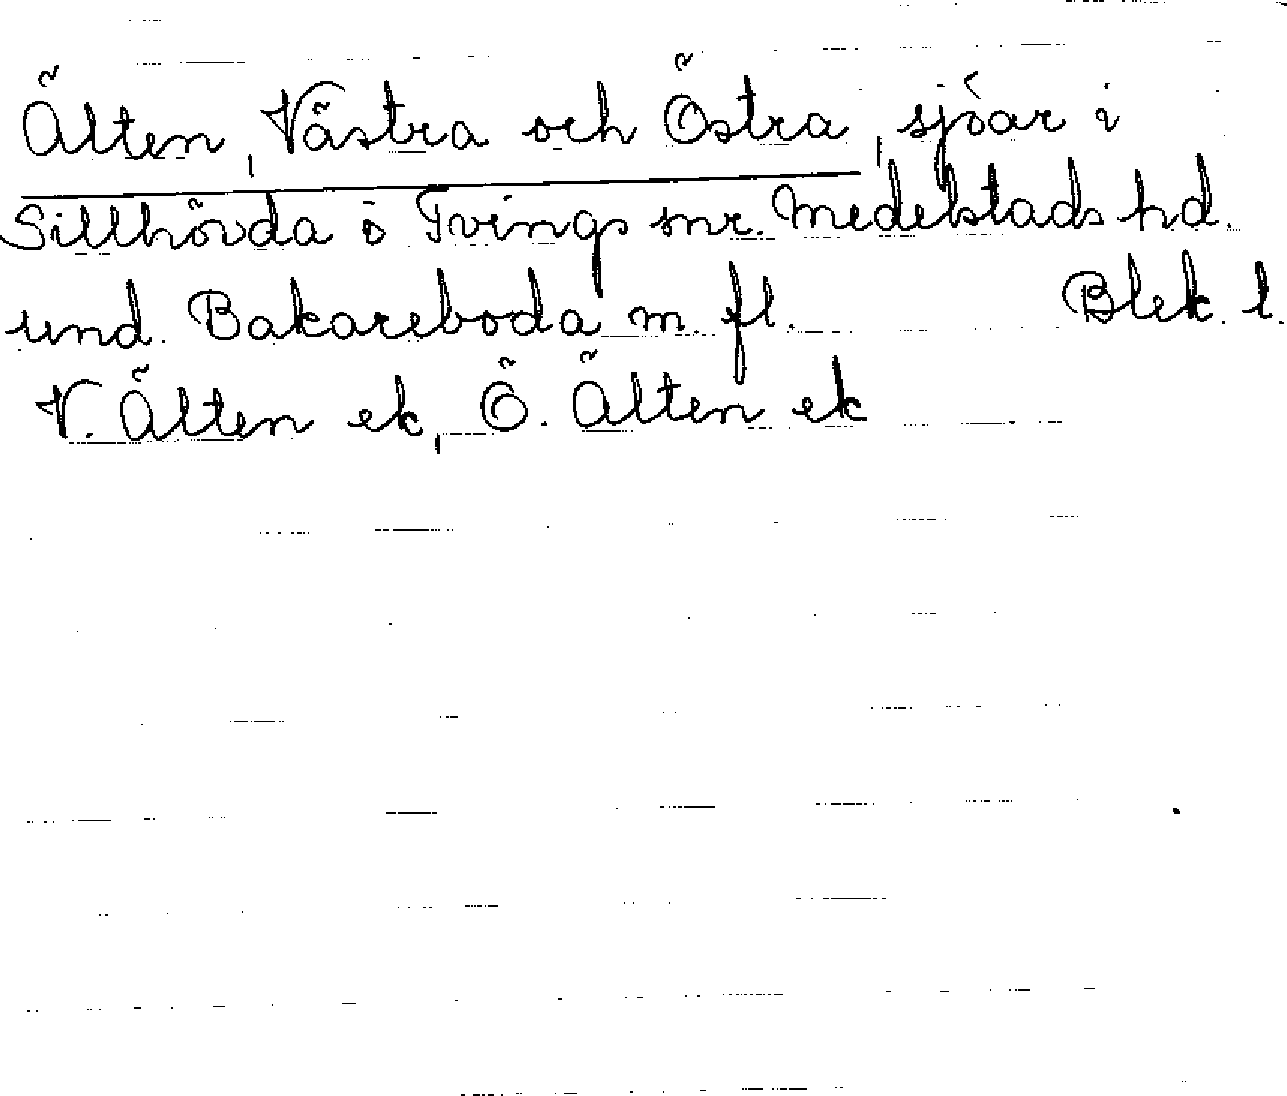 Älten, Västra och Östra, sjöar i
Sillhövda o Tvings snr. Medelstads hd.
und. Bakareboda m. fl. Blek. l.
V. Älten ek, Ö. Älten ek